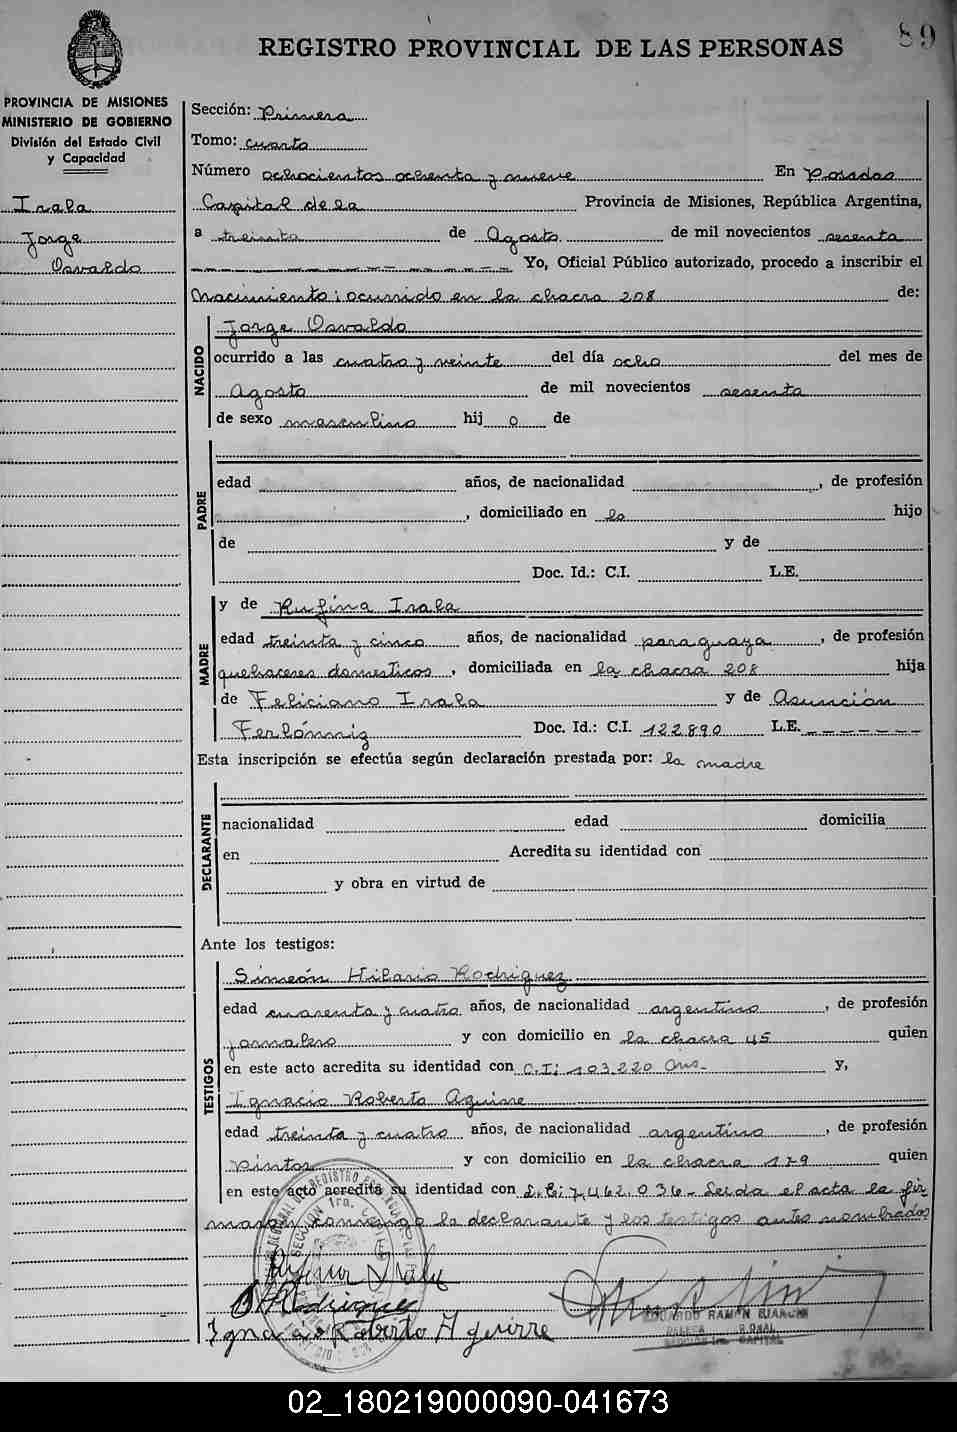 89
REGISTRO PROVINCIAL DE LAS PERSONAS
PROVINCIA DE MISIONES
MINISTERIO DE GOBIERNO
División del Estado Civil
y Capacidad
Irala
Jorge
Osvaldo
Sección: Primera
Tomo: cuarto
Número ochocientos ochenta y nueve En Posadas
Capital de la Provincia de Misiones, República Argentina,
a treinta de Agosto de mil novecientos sesenta
Yo, Oficial Público autorizado, procedo a inscribir el
Nacimiento: ocurrido en la chacra 208 de:
NACIDO
Jorge Osvaldo
ocurrido a las cuatro y veinte del día ocho del mes de
Agosto de mil novecientos sesenta
de sexo masculino hij o de
PADRE
edad años, de nacionalidad , de profesión
, domiciliado en la hijo
de y de
Doc. Id.: C.I. L.E.
MADRE
y de Rufina Irala
edad treinta y cinco años, de nacionalidad paraguaya , de profesión
quehaceres domesticos , domiciliada en la chacra 208 hija
de Feliciano Irala y de Asunción
Doc. Id.: C.I. 122890 L.E. - - - - - -
Esta inscripción se efectúa según declaración prestada por: la madre
DECLARANTE
nacionalidad edad domicilia
en Acredita su identidad con
y obra en virtud de
Ante los testigos:
TESTIGOS
Simeón Hilario Rodriguez
edad cuarenta y cuatro años, de nacionalidad argentino , de profesión
jornalero y con domicilio en la chacra 45 quien
en este acto acredita su identidad con C.I: 103.220 y,
Ignacio Roberto Aguirre
edad treinta y cuatro años, de nacionalidad argentino , de profesión
Pintor y con domicilio en la chacra 179 quien
en este acto acredita su identidad con L.E: 7.462.036 - Leida el acta la fir
maron conmigo la declarante y los testigos antes nombrados
Rufina Irala
Rodriguez
Ignacio Roberto Aguirre
EDUARDO RAMON BIANCHI
SECCION 1ra. CAPITAL
02_180219000090-041673